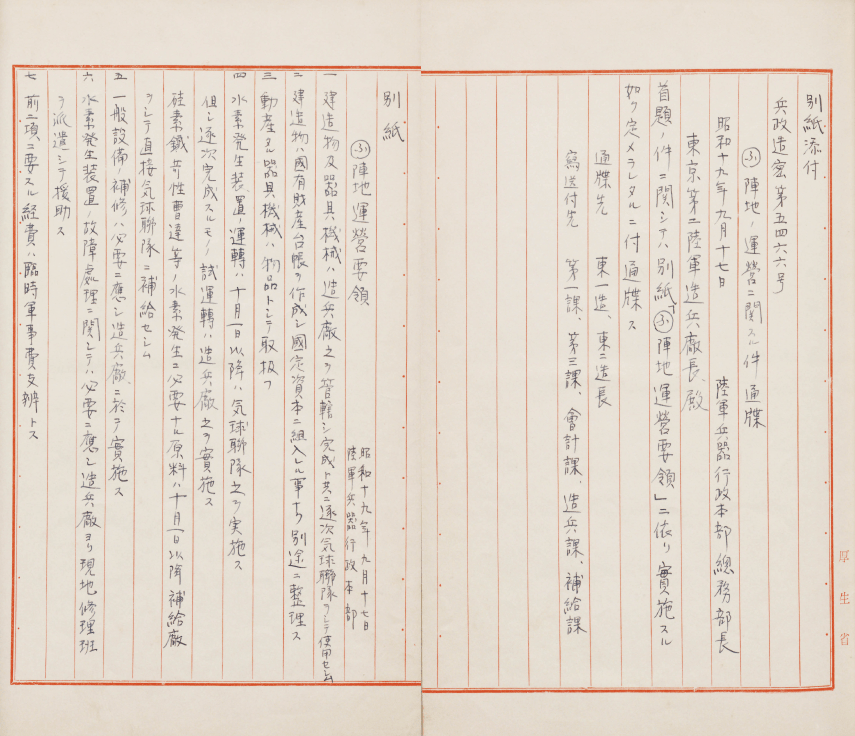 別紙添付
兵政造密第五四六六号
㋫陣地ノ運營ニ関スル件通牒
昭和十九年九月十七日
陸軍兵器行政本部總務部長
東京第二陸軍造兵廠長殿
首題ノ件ニ関シテハ別紙「㋫陣地運營要領」ニ依リ實施スル
如ク定メラレタルニ付通牒ス
通牒先 東一造、東二造長
寫送付先 第一課、第三課、會計課、造兵課、補給課
厚生省
別紙
㋫陣地運營要領
昭和十九年九月十七日
陸軍兵器行政本部
一 建造物及器具機械ハ造兵廠之ヲ管轄シ完成ト共ニ逐次気球聯隊ヲシテ使用セシム
二 建造物ハ國有財産台帳ヲ作成シ國定資本ニ組入レル事ナク別途ニ整理ス
三 動産タル器具機械ハ物品トシテ取扱フ
四 水素発生装置ノ運轉ハ十月一日以降ハ気球聯隊之ヲ実施ス
但シ逐次完成スルモノノ試運轉ハ造兵廠之ヲ實施ス
硅素鐵苛性曹達等ノ水素発生ニ必要ナル原料ハ十月一日以降補給廠
ヲシテ直接気球聯隊ニ補給セシム
五 一般設備ノ補修ハ必要ニ應シ造兵廠ニ於テ實施ス
六 水素発生装置ノ故障處理ニ関シテハ必要ニ應シ造兵廠ヨリ現地修理班
ヲ派遣シテ援助ス
七 前二項ニ要スル経費ハ臨時軍事費支辨トス